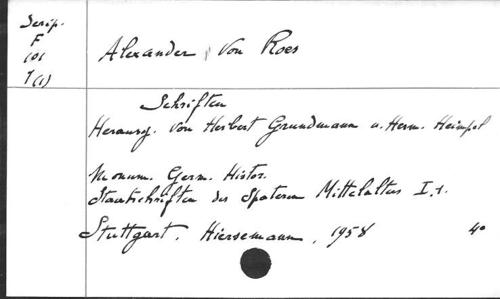 Scrip.
F
101
7(1)
Alexander, von Roes
Schriften
Herausg. von Herbert Grundmann u. Herm. Heimpel
Monum. Germ. Histor.
Staatschriften des Spateren Mittelalters I,1.
Stuttgart, Hiersemann, 1958 4º